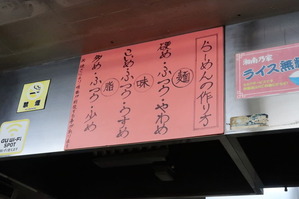 らーめんの作り方
麺
硬め・ふつう・やわめ
味
こめ・ふつう・うすめ
脂
多め・ふつう・少め
湘南乃家
ライス無料
禁煙
au Wi-Fi
SPOT